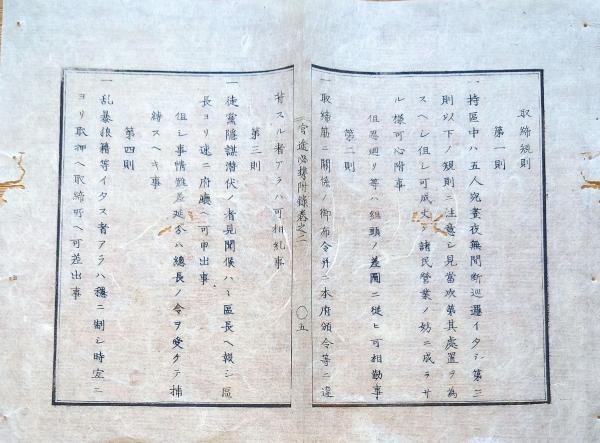 取締規則
第一則
一持區中ハ五人宛晝夜無間断巡邏イタシ第三
則以下ノ規則ニ注意シ見當次第其處置ヲ為
スヘシ但シ可成丈ケ諸民營業ノ妨ニ成ラサ
ル様可心附事
但忍廻リ等ハ組頭ノ差圖ニ従ヒ可相勤事
第二則
一取締筋ニ關係ノ御布令并ニ本府頒令等ニ違
官途必携附録巻之二
〇五
背スル者アラハ可相糺事
第三則
一徒黨隠謀潜伏ノ者見聞候ハヽ區長ヘ報シ區
長ヨリ速ニ府廳ヘ可申出事
但シ事情難差延分ハ總長ノ令ヲ受ケテ捕
縛スヘキ事
第四則
一乱暴狼籍等イタス者アラハ穏ニ制シ時宜ニ
ヨリ取押ヘ取締所ヘ可差出事